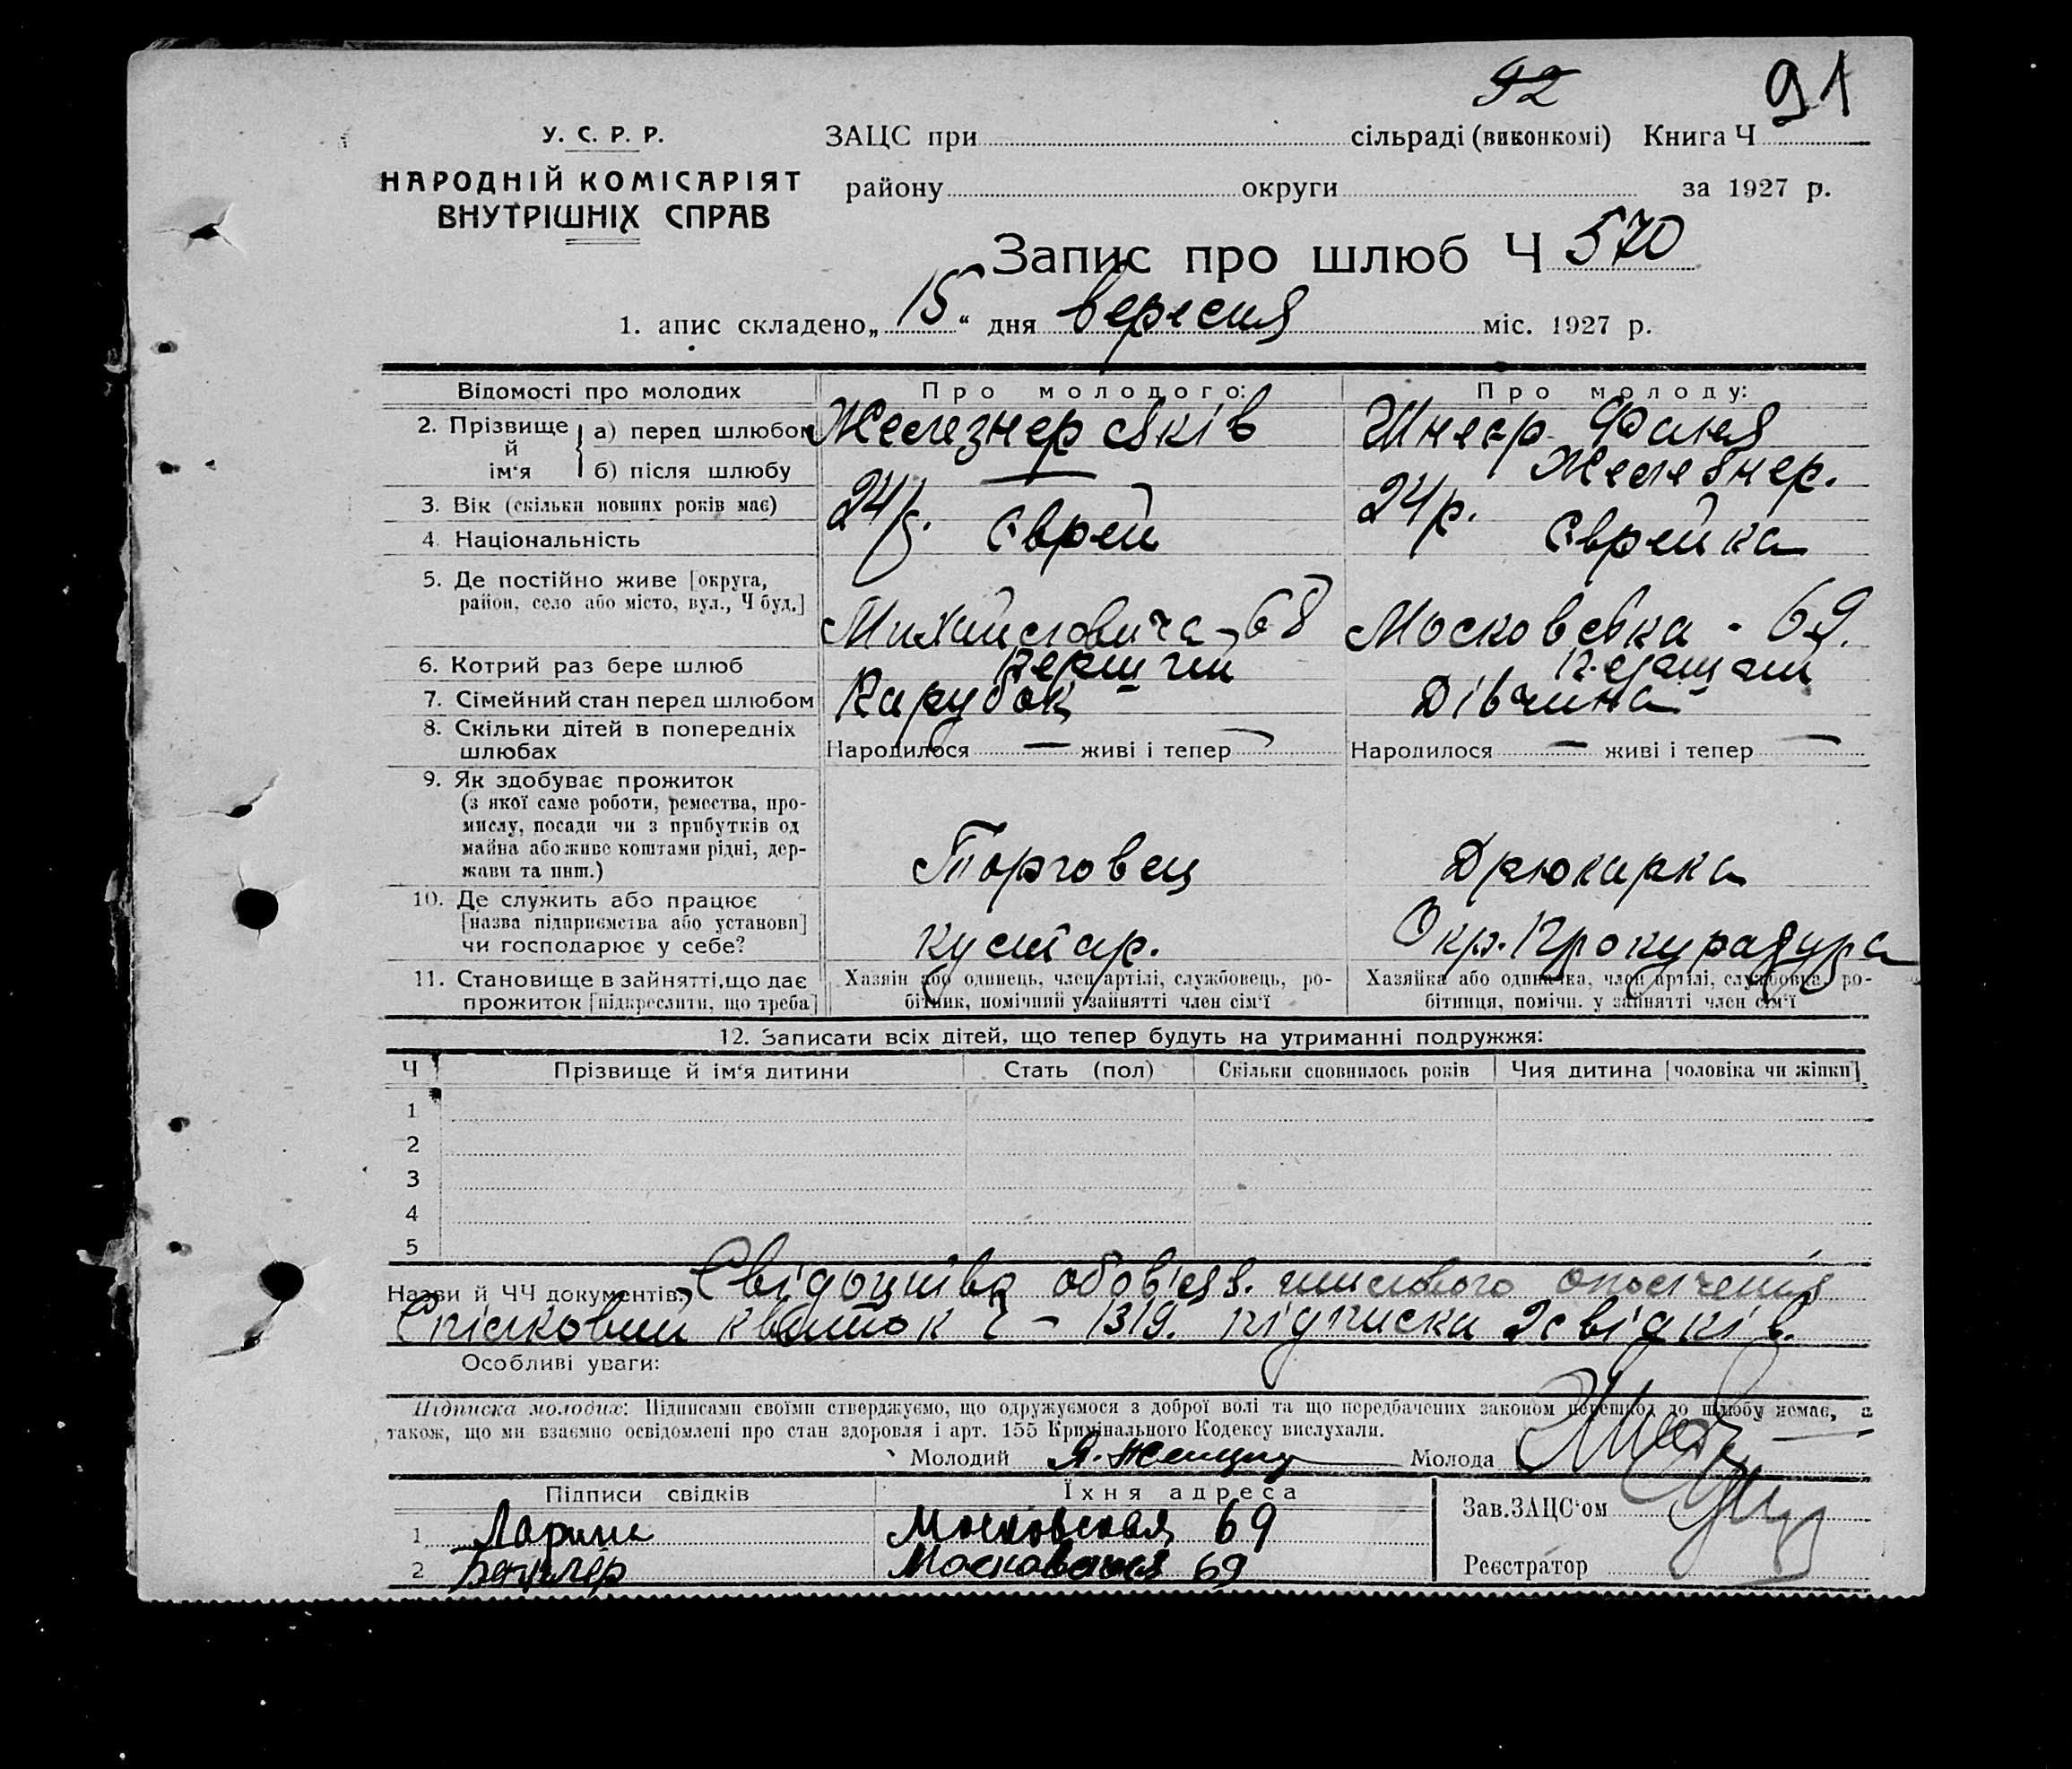 92 91
У. С. Р. Р.
ЗАЦС при сільраді (виконкомі) Книга Ч
НАРОДНІЙ КОМІСАРІЯТ
району округи за 1927 р.
ВНУТРІШНІХ СПРАВ
Запис про шлюб Ч 570
1. апис складено „ 15 “ дня вересня міс. 1927 р.
Відомості про молодих Про молодого: Про молоду:
2. Прізвище й ім'я а) перед шлюбом Железнер Яків Шнеєр Фаня
б) після шлюбу — Железнер.
3. Вік (скільки повних років має) 24 р. 24 р.
4. Національність Єврей Єврейка
5. Де постійно живе [округа,
район, село або місто, вул., Ч буд.] Михайловича - 68 Московська - 69.
6. Котрий раз бере шлюб Перший Перший
7. Сімейний стан перед шлюбом Парубок Дівчина
8. Скільки дітей в попередніх
шлюбах Народилося — живі і тепер — Народилося — живі і тепер —
9. Як здобуває прожиток
(з якої саме роботи, ремества, про-
мислу, посади чи з прибутків од
майна або живе коштами рідні, дер-
жави та инш.) Торговец Друкарка
10. Де служить або працює
[назва підприємства або установи]
чи господарює у себе? кустар. Окр. Прокурадура
11. Становище в зайнятті, що дає Хазяін або одинець, член артілі, службовець, ро- Хазяйка або одиначка, член артілі, службовка, ро-
прожиток [підкреслити, що треба] бітник, помічний у зайнятті член сім'ї бітниця, помічн. у зайнятті член сім'ї
12. Записати всіх дітей, що тепер будуть на утриманні подружжя:
Ч Прізвище й ім'я дитини Стать (пол) Скільки сповнилось років Чия дитина [чоловіка чи жінки]
1
2
3
4
5
Назви й ЧЧ документів: Свідоцтво обов'яз.
Спілковий квиток Ч – 1319. підписка 2 свідків.
Особливі уваги:
Підписка молодих: Підписами своїми стверджуємо, що одружуємося з доброї волі та що передбачених законом перешкод до шлюбу немає, а
також, що ми взаємно освідомлені про стан здоровля і арт. 155 Кримінального Кодексу вислухали.
Молодий Я. Молода
Підписи свідків Їхня адреса
Зав. ЗАЦС'ом
1 Ларина Московская 69
2 Московская 69
Реєстратор